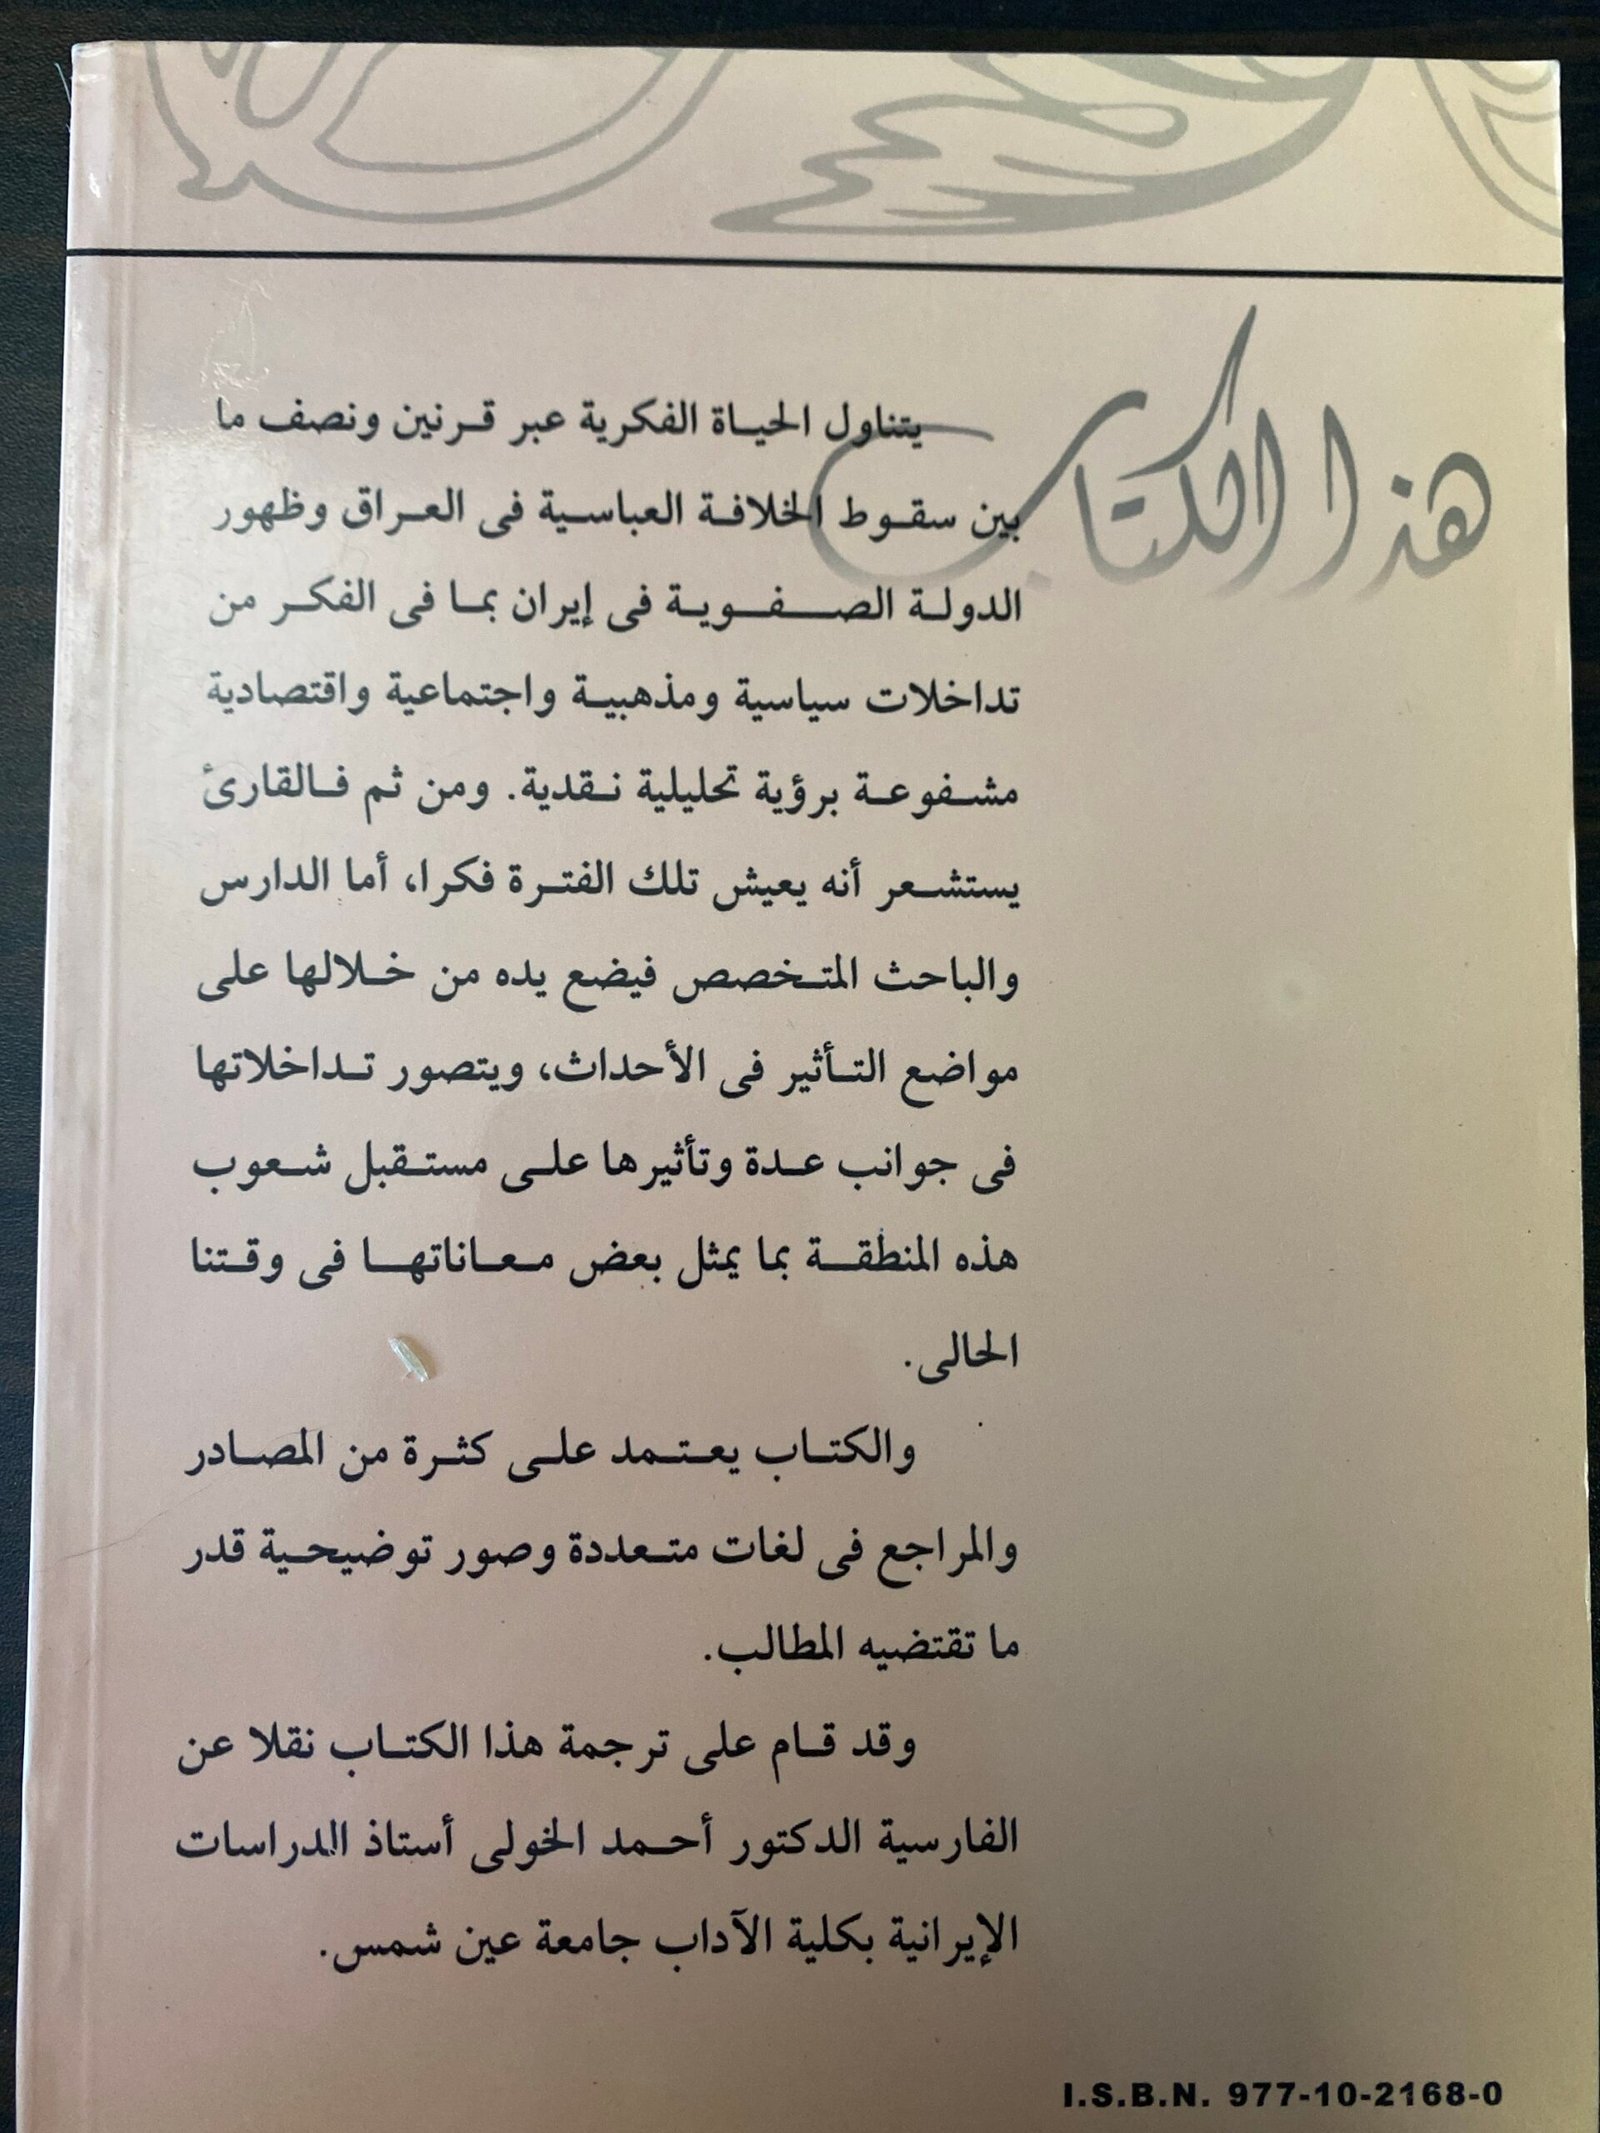 هذا الكتاب
يتناول الحياة الفكرية عبر قرنين ونصف ما
بين سقوط الخلافة العباسية فى العراق وظهور
الدولة الصفوية فى إيران بما فى الفكر من
تداخلات سياسية ومذهبية واجتماعية واقتصادية
مشفوعة برؤية تحليلية نقدية. ومن ثم فالقارئ
يستشعر أنه يعيش تلك الفترة فكرا، أما الدارس
والباحث المتخصص فيضع يده من خلالها على
مواضع التأثير فى الأحداث، ويتصور تداخلاتها
فى جوانب عدة وتأثيرها على مستقبل شعوب
هذه المنطقة بما يمثل بعض معاناتها فى وقتنا
الحالى.
والكتاب يعتمد على كثرة من المصادر
والمراجع فى لغات متعددة وصور توضيحية قدر
ما تقتضيه المطالب.
وقد قام على ترجمة هذا الكتاب نقلا عن
الفارسية الدكتور أحمد الخولى أستاذ الدراسات
الإيرانية بكلية الآداب جامعة عين شمس.
I.S.B.N. 977-10-2168-0